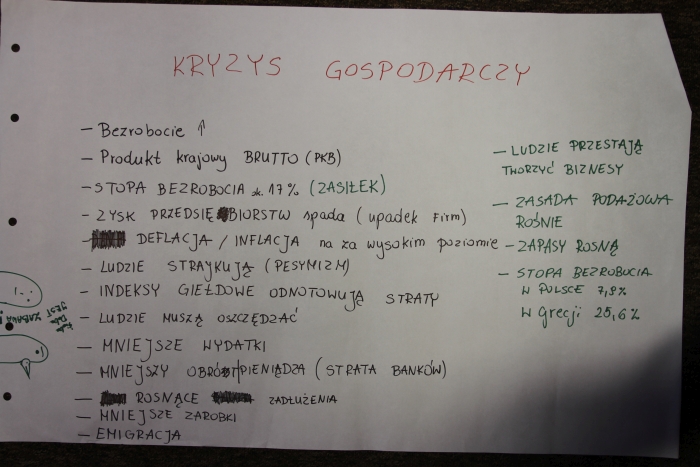 KRYZYS GOSPODARCZY
– Bezrobocie ↑
– Produkt krajowy BRUTTO (PKB)
– STOPA BEZROBOCIA ok. 17% (ZASIŁEK)
– ZYSK PRZEDSIĘBIORSTW spada (upadek FIRM)
– DEFLACJA / INFLACJA na za wysokim poziomie
– LUDZIE STRAYKUJĄ (PESYMIZM)
– INDEKSY GIEŁDOWE ODNOTOWUJĄ STRATY
– LUDZIE MUSZĄ OSZCZĘDZAĆ
– MNIEJSZE WYDATKI
– MNIEJSZY OBRÓT PIENIĄDZA (STRATA BANKÓW)
– ROSNĄCE ZADŁUŻENIA
– MNIEJSZE ZAROBKI
– EMIGRACJA
– LUDZIE PRZESTAJĄ
TWORZYĆ BIZNESY
– ZASADA PODAŻOWA
ROŚNIE
– ZAPASY ROSNĄ
– STOPA BEZROBUCIA
W POLSCE 7,9%
W Grecji 25,6%
JEST ZABAWA